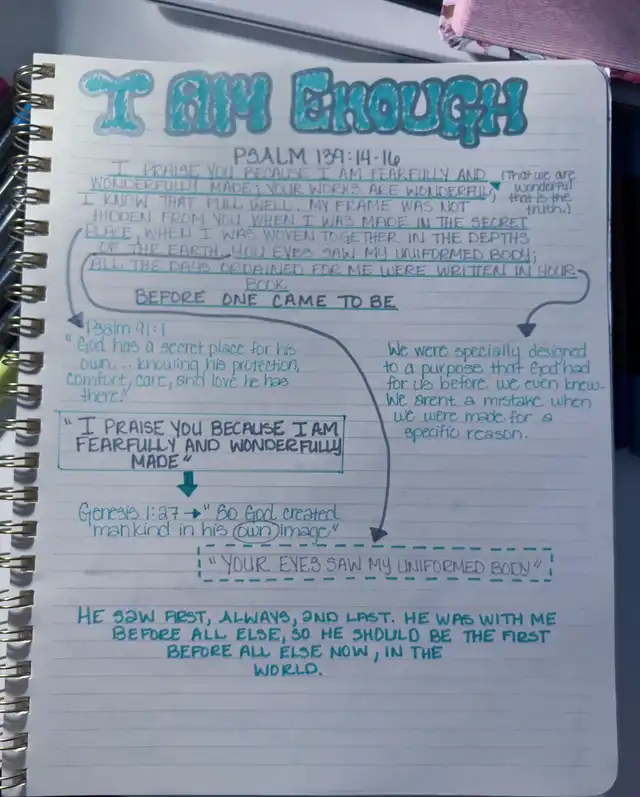 I AM ENOUGH
PSALM 139:14-16
I PRAISE YOU BECAUSE I AM FEARFULLY AND
WONDERFULLY MADE; YOUR WORKS ARE WONDERFUL,
(That we are
wonderful
that is the
truth.)
I KNOW THAT FULL WELL. MY FRAME WAS NOT
HIDDEN FROM YOU WHEN I WAS MADE IN THE SECRET
PLACE, WHEN I WAS WOVEN TOGETHER IN THE DEPTHS
OF THE EARTH. YOU EYES SAW MY UNIFORMED BODY;
ALL THE DAYS ORDAINED FOR ME WERE WRITTEN IN YOUR
BOOK
BEFORE ONE CAME TO BE
Psalm 91:1
"God has a secret place for his
own... knowing his protection,
comfort, care, and love he has
there."
We were specially designed
to a purpose that God had
for us before we even knew.
We arent a mistake when
we were made for a
specific reason.
"I PRAISE YOU BECAUSE I AM
FEARFULLY AND WONDERFULLY
MADE"
Genesis 1:27 → "So God created
mankind in his own image"
"YOUR EYES SAW MY UNIFORMED BODY"
HE SAW FIRST, ALWAYS, AND LAST. HE WAS WITH ME
BEFORE ALL ELSE, SO HE SHOULD BE THE FIRST
BEFORE ALL ELSE NOW, IN THE
WORLD.